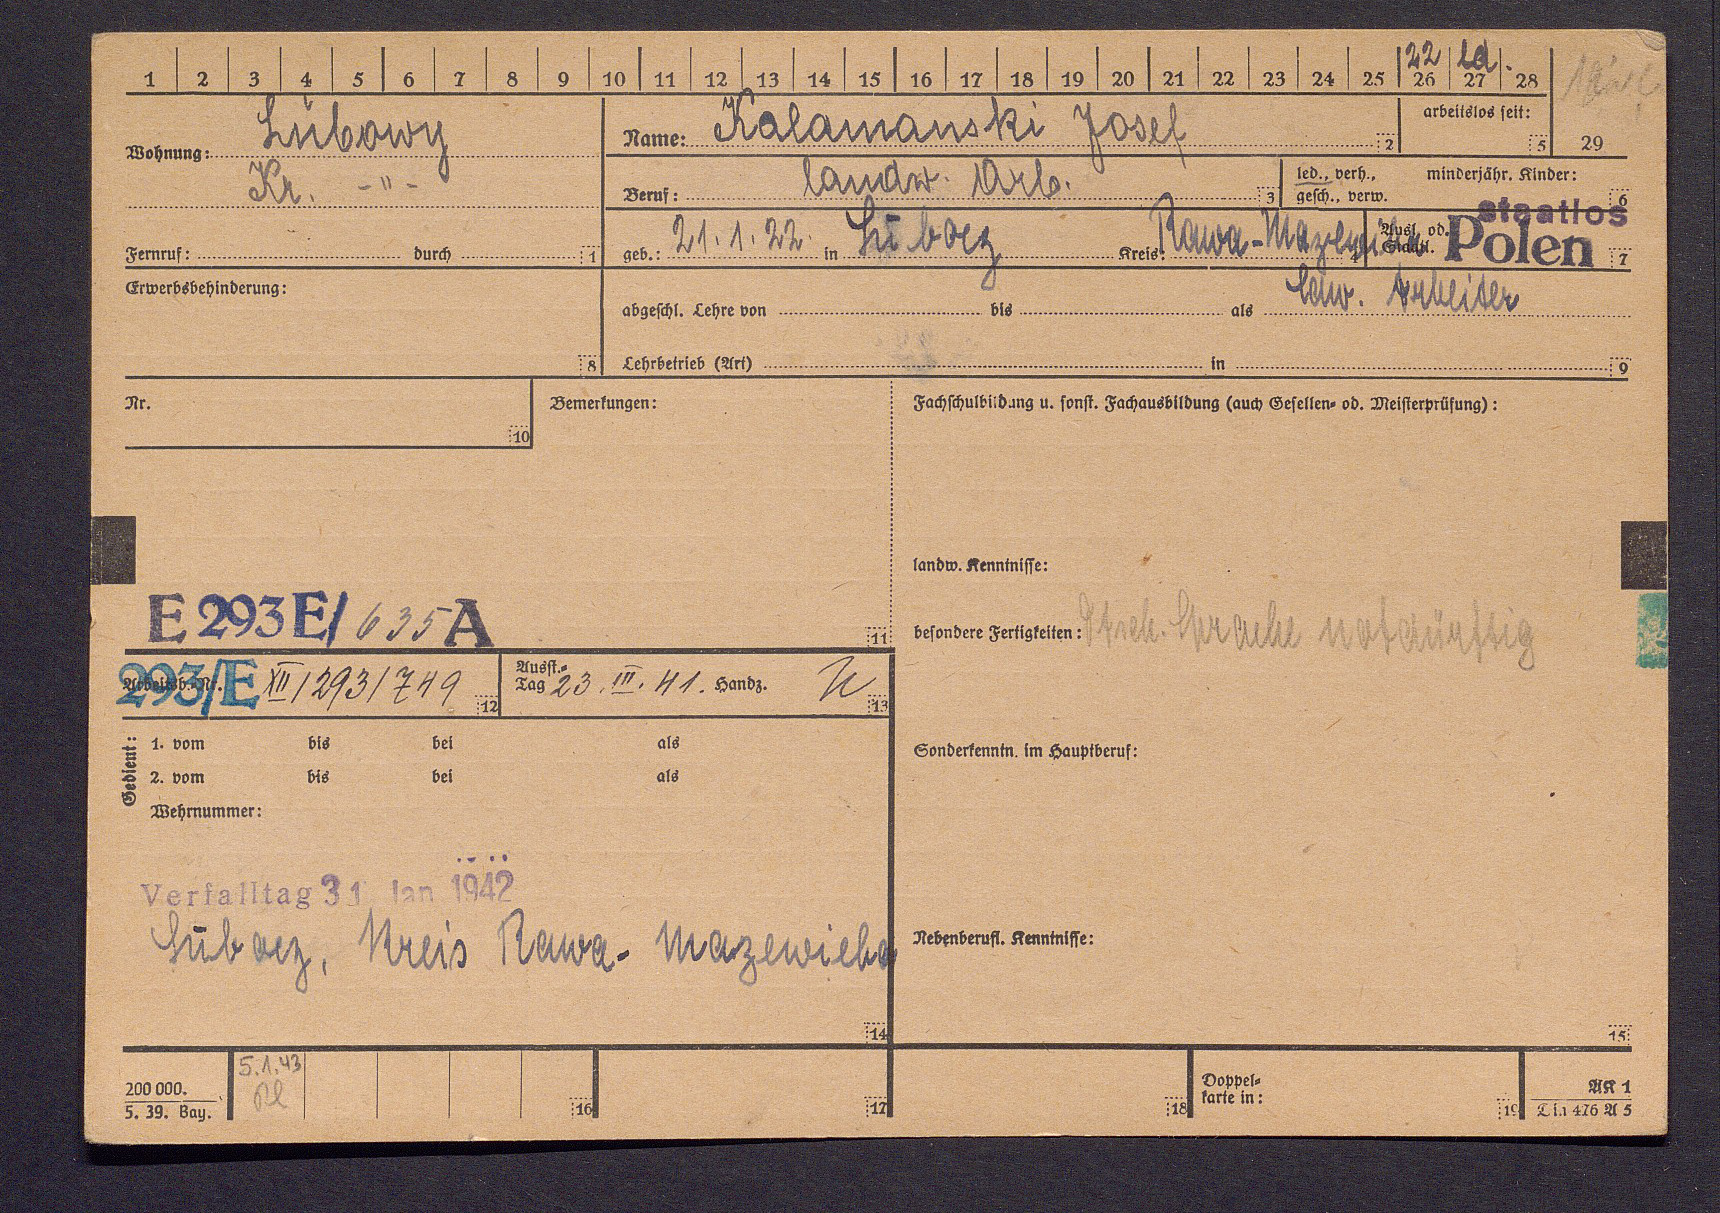 22 ld.
1 2 3 4 5 6 7 8 9 10 11 12 13 14 15 16 17 18 19 20 21 22 23 24 25 26 27 28
29
Wohnung: Lubowy
Kr. -"-
Fernruf: durch 1
Name: Kalamanski Josef 2
arbeitslos seit: 5
Beruf: landw. Arb. 3
led., verh., gesch., verw.
minderjähr. Kinder: 6
geb.: 21.1.22. in Lubocz Kreis: Rawa-
Ausl. od. Staatl. staatlos Polen 7
Erwerbsbehinderung: 8
abgeschl. Lehre von bis als ldw. Arbeiter
Lehrbetrieb (Art) in 9
Nr. 10
Bemerkungen:
Fachschulbildung u. sonst. Fachausbildung (auch Gesellen- od. Meisterprüfung):
landw. Kenntnisse:
E 293 E/ 635 A 11
besondere Fertigkeiten: Dtsch. Sprache notdürftig
293/E
Arbeitsb.-Nr. XII/293/749 12
Ausst.-Tag 23.III.41. Handz. 13
Gedient:
1. vom bis bei als
2. vom bis bei als
Wehrnummer:
Sonderkenntn. im Hauptberuf:
Verfalltag 31 Jan 1942
Lubocz, Kreis Rawa- Mazewieka
14
Nebenberufl. Kenntnisse:
15
200 000.
5. 39. Bay.
5.1.43
16
17
18
Doppelkarte in: 19
AK 1
Din 476 A 5